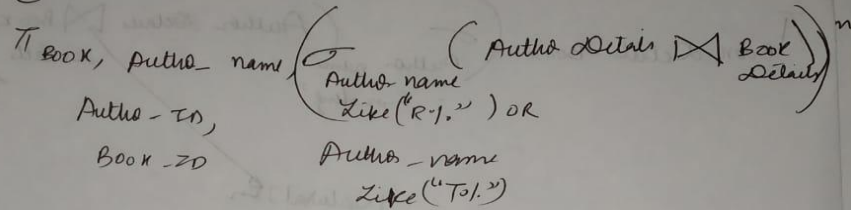 π BOOK, Autho_ name, (σ ( Autho Details ⋈ Book Details))
Autho - ID,
BOOK - ID
Author name
Like("R-%.") OR
Autho_name
Like("T%")